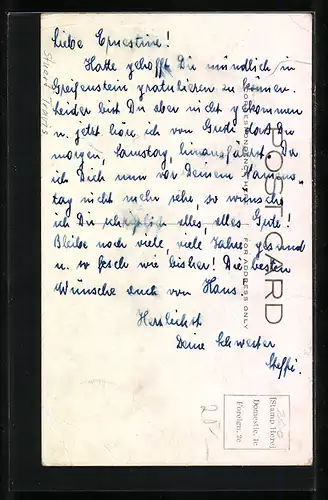 Liebe Ernestine!
Hatte gehofft Dir mündlich in
Greifenstein gratulieren zu können.
Leider bist Du aber nicht gekommen
u. jetzt höre ich von Gredi dass Du
morgen, Samstag, hinausfährst. Da
ich Dich nun vor Deinem Namens-
tag nicht mehr sehe, so wünsche
ich Dir schriftlich alles, alles Gute!
Bleibe noch viele, viele Jahre gesund
u. so fesch wie bisher! Die besten
Wünsche auch von Hans.
Herzlichst
Deine Schwester
Steffi.
Stuart
POST CARD
CORRESPONDENCE HERE
FOR ADDRESS ONLY
Stamp Here
Domestic, 1c
Foreign, 2c
20-